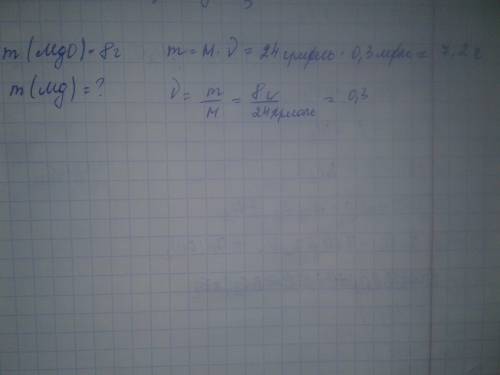 m (MgO) = 8г m = M · ν = 24 г/моль · 0,3 моль = 7,2 г
m (Mg) = ? ν = m/M = 8г/24г/моль = 0,3